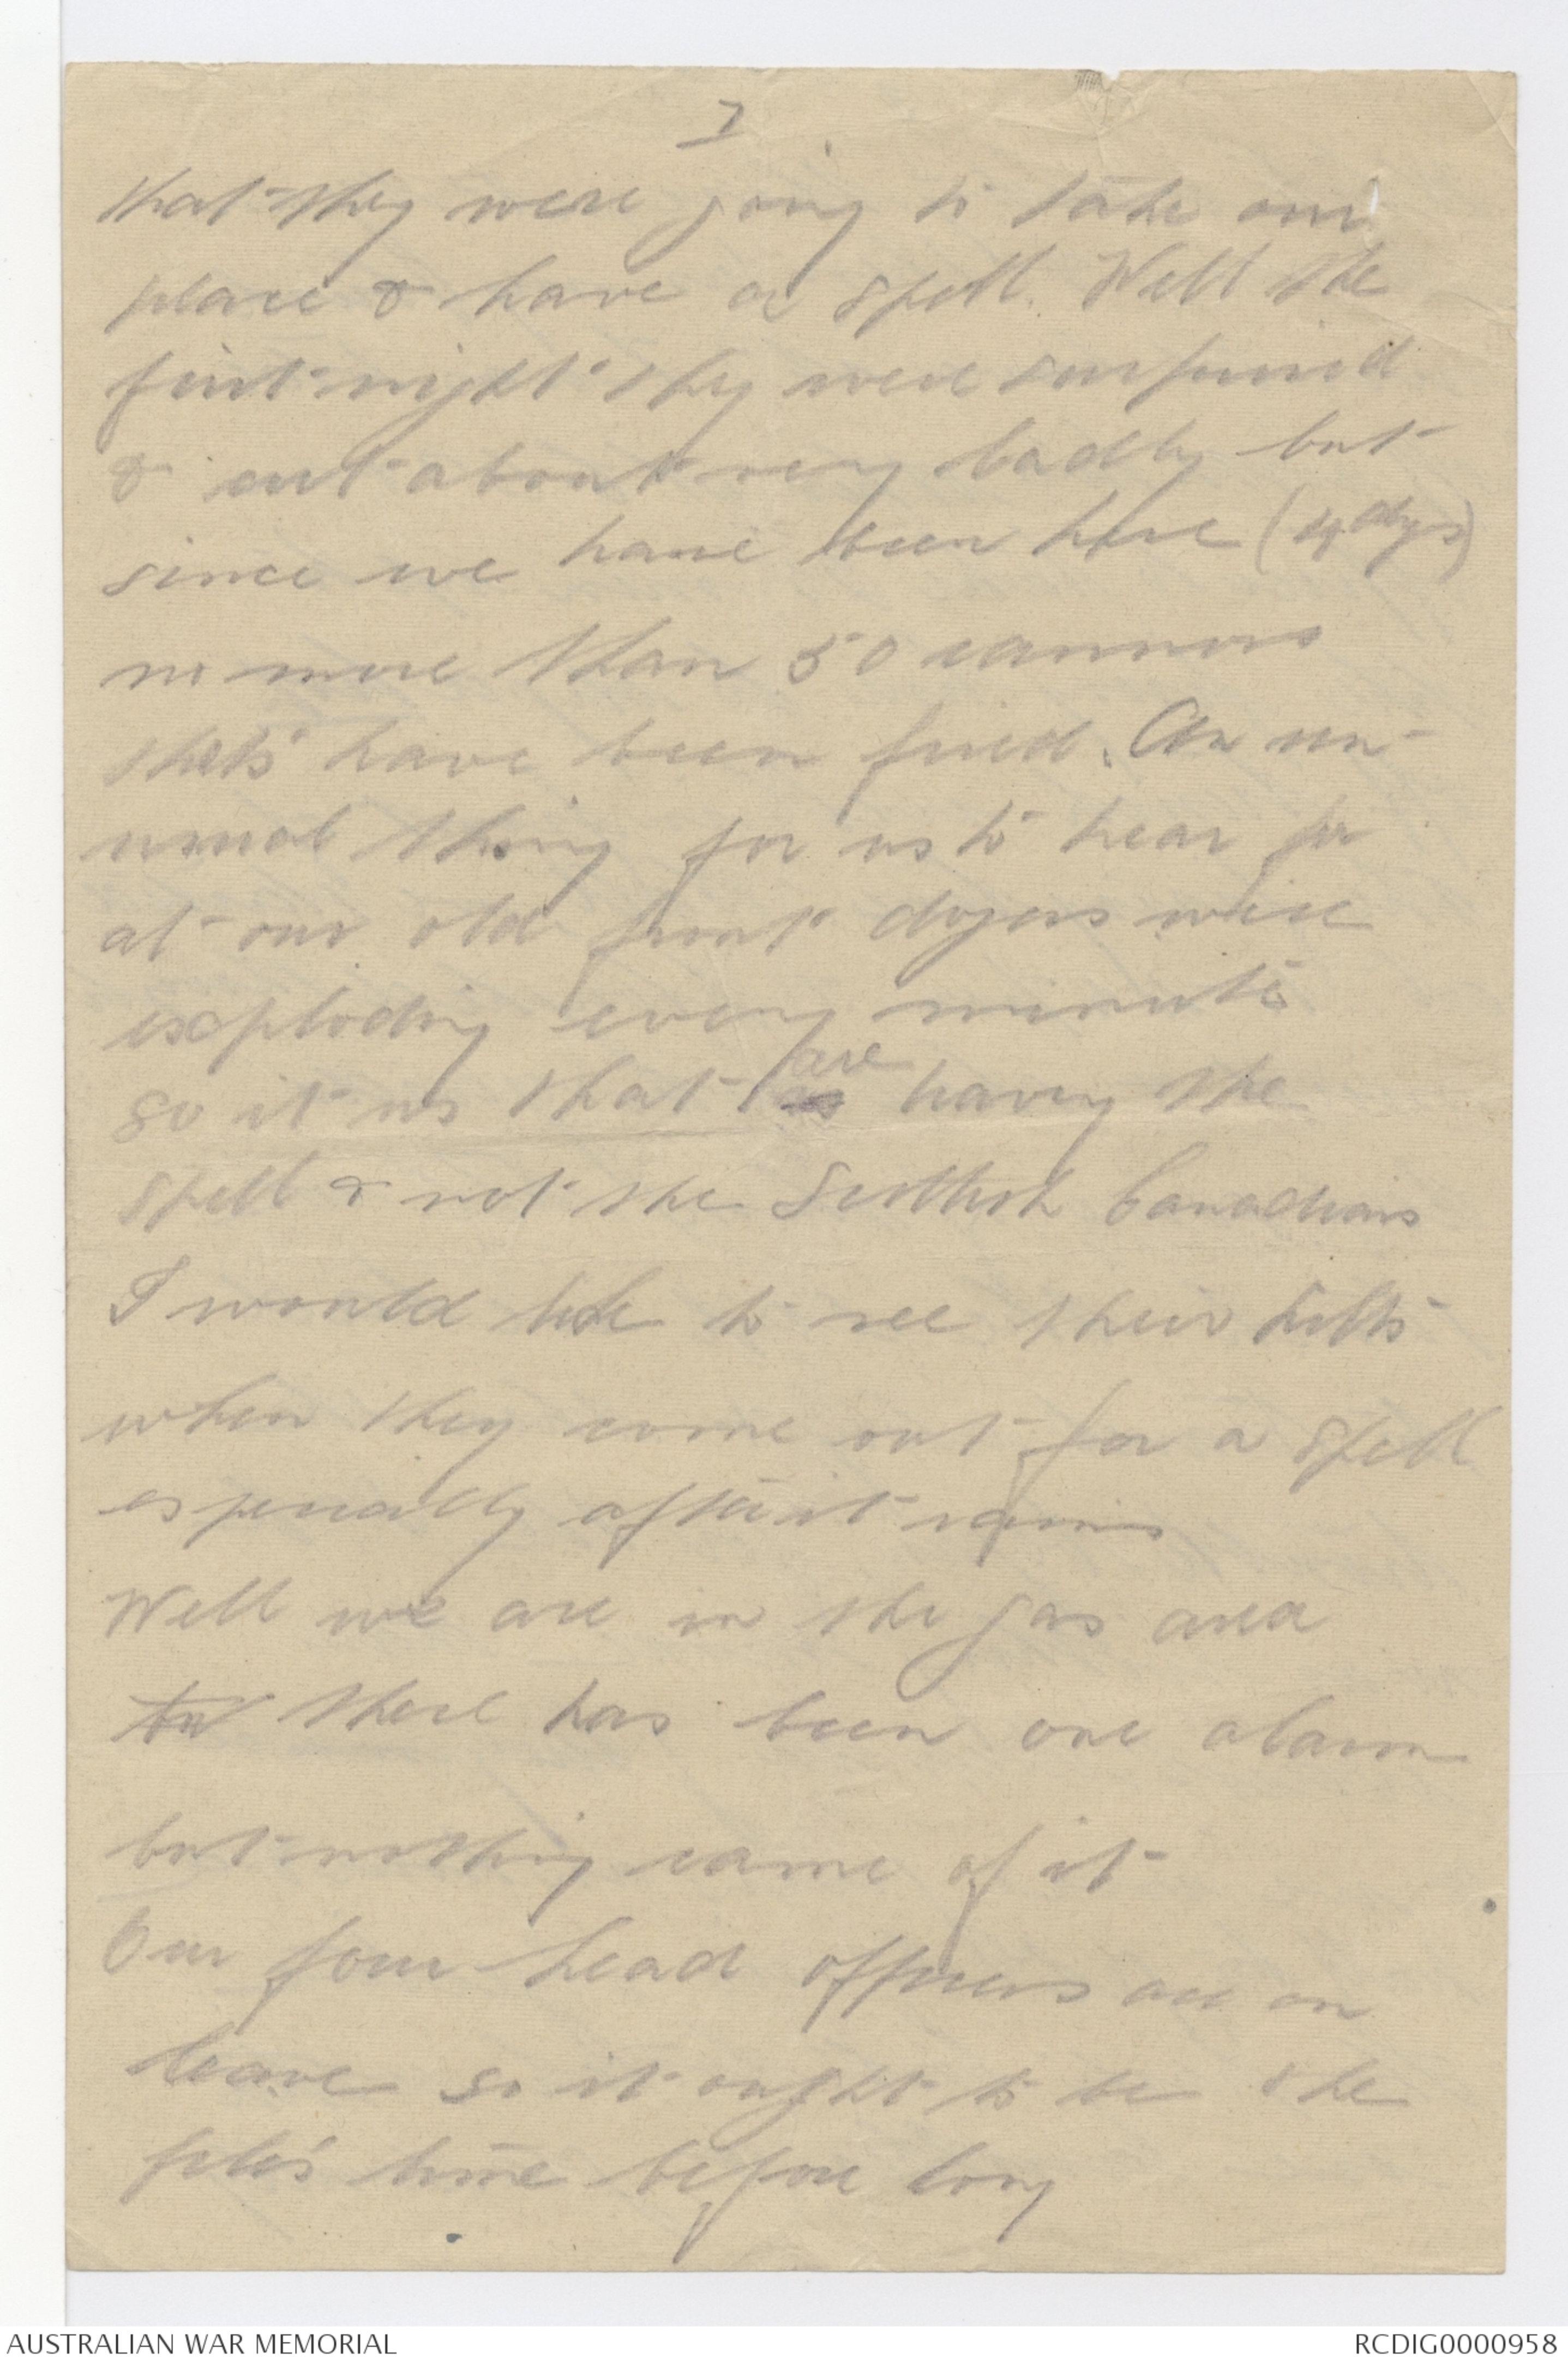 7
that they were going to take our
place & have a spell. Well the
first night they were surprised
& cut about very badly but
since we have been here (4 dys)
no more than 50 cannons
shots have been fired. An un-
usual thing for us to hear for
at our old front dozens were
exploding every minute
so it us that are having the
spell & not the Scottish Canadians
I would like to see their kilts
when they come out for a spell
especially after it rains
Well we are in the gas area
there has been one alarm
but nothing came of it
Our four head officers are on
leave so it ought to be the
time before long
AUSTRALIAN WAR MEMORIAL
RCDIG0000958